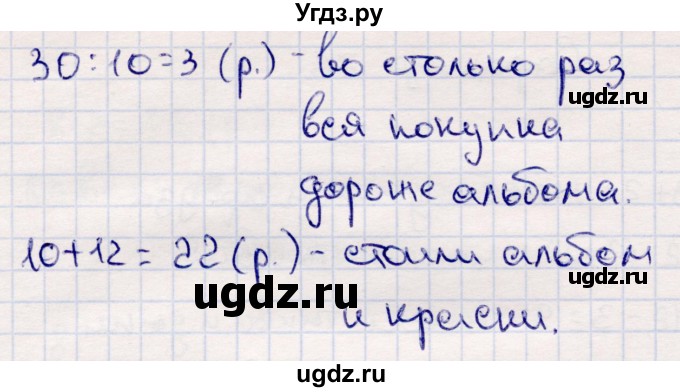 Угдз.ру
30:10=3 (р.) - во столько раз
ugdz.ru
вся покупка
дороже альбома.
10+12=22 (р.) - стоили альбом
ugdz.ru
и краски.
ugdz.ru